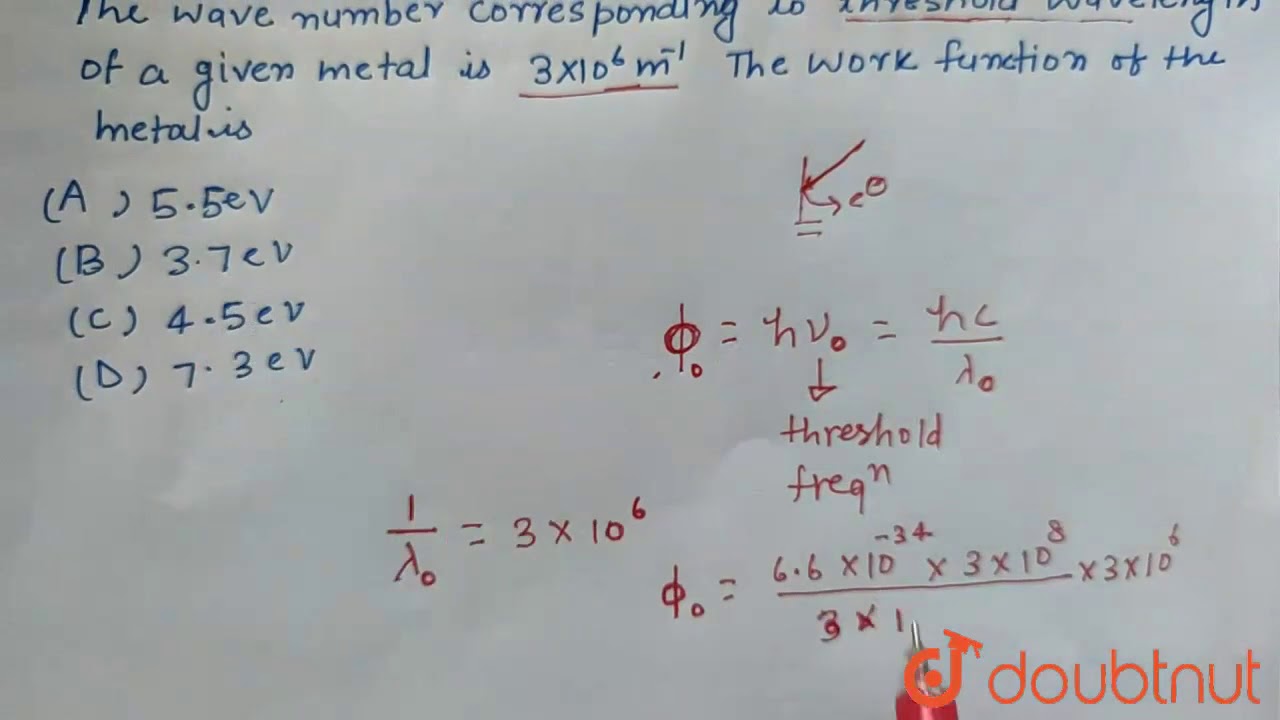 The wave number corresponding to threshold wavelength
of a given metal is 3×10⁶ m⁻¹ The work function of the
metal is
(A) 5.5eV
(B) 3.7eV
(C) 4.5eV
(D) 7.3eV
e⊖
ϕ₀ = hν₀ = hc/λ₀
threshold
freqⁿ
1/λ₀ = 3×10⁶
ϕ₀ = 6.6×10⁻³⁴ × 3×10⁸ / 3×1 × 3×10⁶
doubtnut